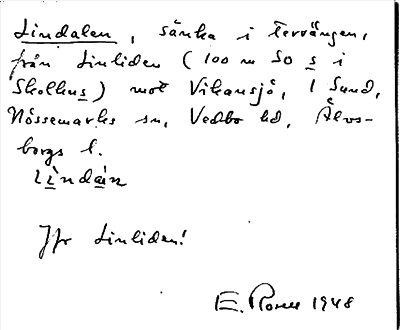 Lindalen, sänka i terrängen,
från Linliden (100 m SO s i
Skolhus) mot Vikansjö, 1 Sund,
Nössemarks sn, Vedbo hd, Älvs-
borgs l.
Lìndáin
Jfr Linliden!
E. 1948